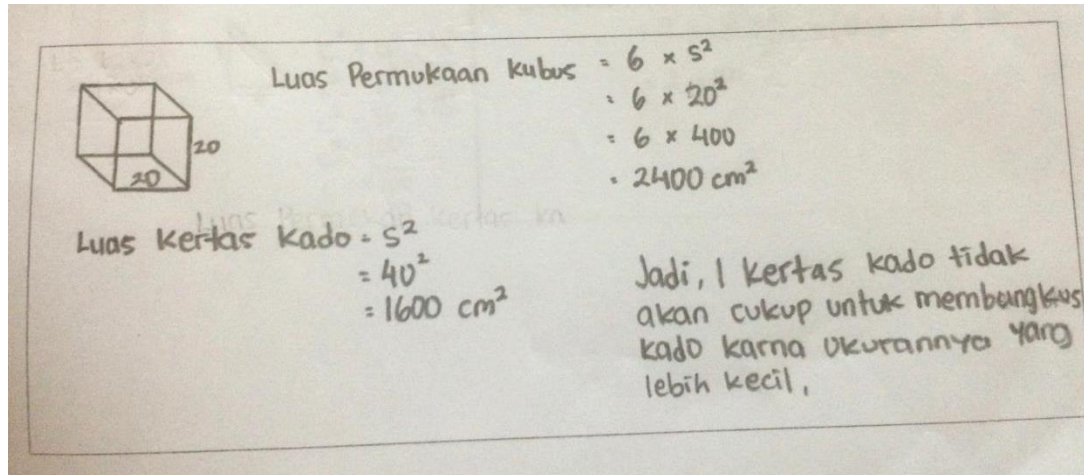 Luas Permukaan Kubus = 6 x s²
= 6 x 20²
= 6 x 400
= 2400 cm²
20
20
Luas Kertas Kado = s²
= 40²
= 1600 cm²
Jadi, 1 kertas kado tidak
akan cukup untuk membungkus
kado karna ukurannya yang
lebih kecil,